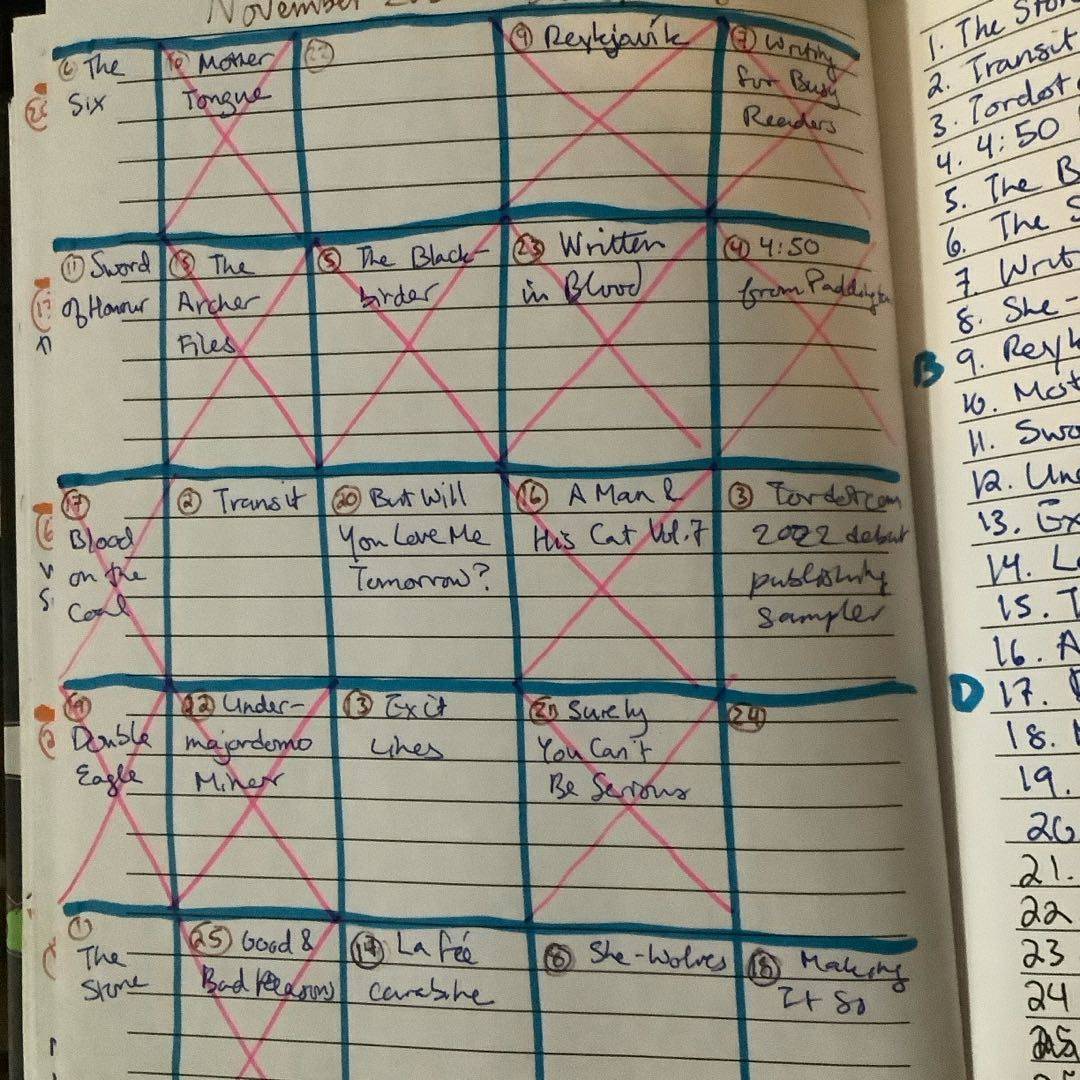 November
6 The
Six
10 Mother
Tongue
22
9 Reykjavik
7 Writing
for Busy
Readers
11 Sword
of Honour
15 The
Archer
Files
5 The Black-
birder
23 Written
in Blood
4 4:50
from Paddington
17
Blood
on the
Coal
2 Transit
20 But Will
You Love Me
Tomorrow?
16 A Man &
His Cat Vol.7
3 Tordotcom
2022 debut
publishing
Sampler
19
Double
Eagle
12 Under-
majordomo
Minor
13 Exit
Lines
21 Surely
You Can't
Be Serious
24
1
The
Stone
25 Good &
Bad
14 La Fée
carabine
8 She-Wolves
18 Making
It So
1. The Stone
2. Transit
3. Tordotc
4. 4:50
5. The B
6. The S
7 Writ
8. She-
B 9. Reyk
10. Mot
11. Swo
12. Und
13. Ex
14. La
15. T
16. A
D 17.
18.
19.
20
21.
22
23
24
25